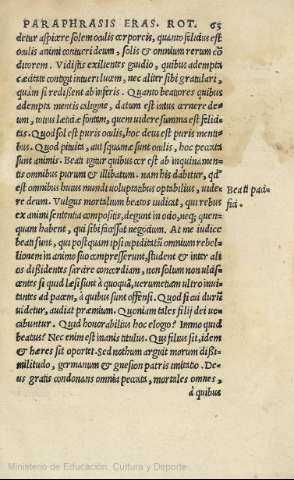 PARAPHRASIS ERAS. ROT. 63
detur aspicere solem oculis corporeis, quanto felicius est
oculis animi contueri deum, solis & omnium rerum con
ditorem. Vidistis exilientes gaudio, quibus adempta
cæcitate contigit intueri lucem, nec aliter sibi gratulari,
quàm si redissent ab inferis. Quanto beatiores quibus
adempta mentis caligine, datum est intus cernere de-
um, totius lætitiæ fontem, quem uidere summa est felici-
tas. Quod sol est puris oculis, hoc deus est puris menti-
bus. Quod pituita, aut squamæ sunt oculis, hoc peccata
sunt animis. Beati igitur quibus cor est ab inquinamen-
tis omnibus purum & illibatum. nam his dabitur, qđ
est omnibus huius mundi uoluptatibus optabilius, uide-
re deum. Vulgus mortalium beatos iudicat, qui rebus
ex animi sententia compositis, degunt in ocio, neq; quen-
quam habent, qui sibi facessat negotium. At me iudice
beati sunt, qui postquam ipsi cupiditatum omnium rebel-
lionem in animo suo compresserunt, student & inter ali
os dissidentes sarcire concordiam, non solum non ulcis-
centes si quid læsi sunt à quoquā, uerumetiam ultro inui-
tantes ad pacem, à quibus sunt offensi. Quod si cui durū
uidetur, audiat præmium. Quoniam tales filij dei uo-
cabuntur. Quid honorabilius hoc elogio? Immo quid
beatius? Nec enim est inanis titulus. Qui filius sit, idem
& hæres sit oportet. Sed nothum arguit morum dissi-
militudo, germanum & gnesion patris imitatio. De-
us gratis condonans omnia peccata, mortales omnes,
à quibus
Beati paci-
fici.
Ministerio de Educación, Cultura y Deporte